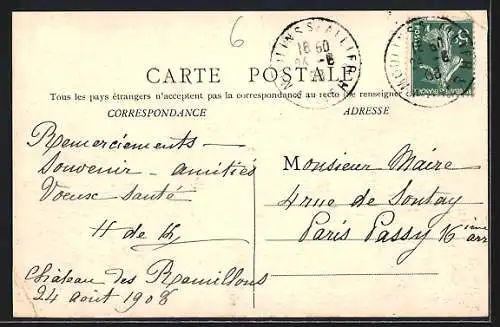 6
MOULINS S/ ALLIER
18 50
24 - 8
08
CARTE POSTALE
Tous les pays étrangers n'acceptent pas la correspondance au recto (se renseigner
CORRESPONDANCE
ADRESSE
Remerciements –
Souvenir – amitiés
Voeux santé
H de
Château des Remillons
24 août 1908
Monsieur Maire
4 rue de Sontay
Paris Passy 16 ième
arr